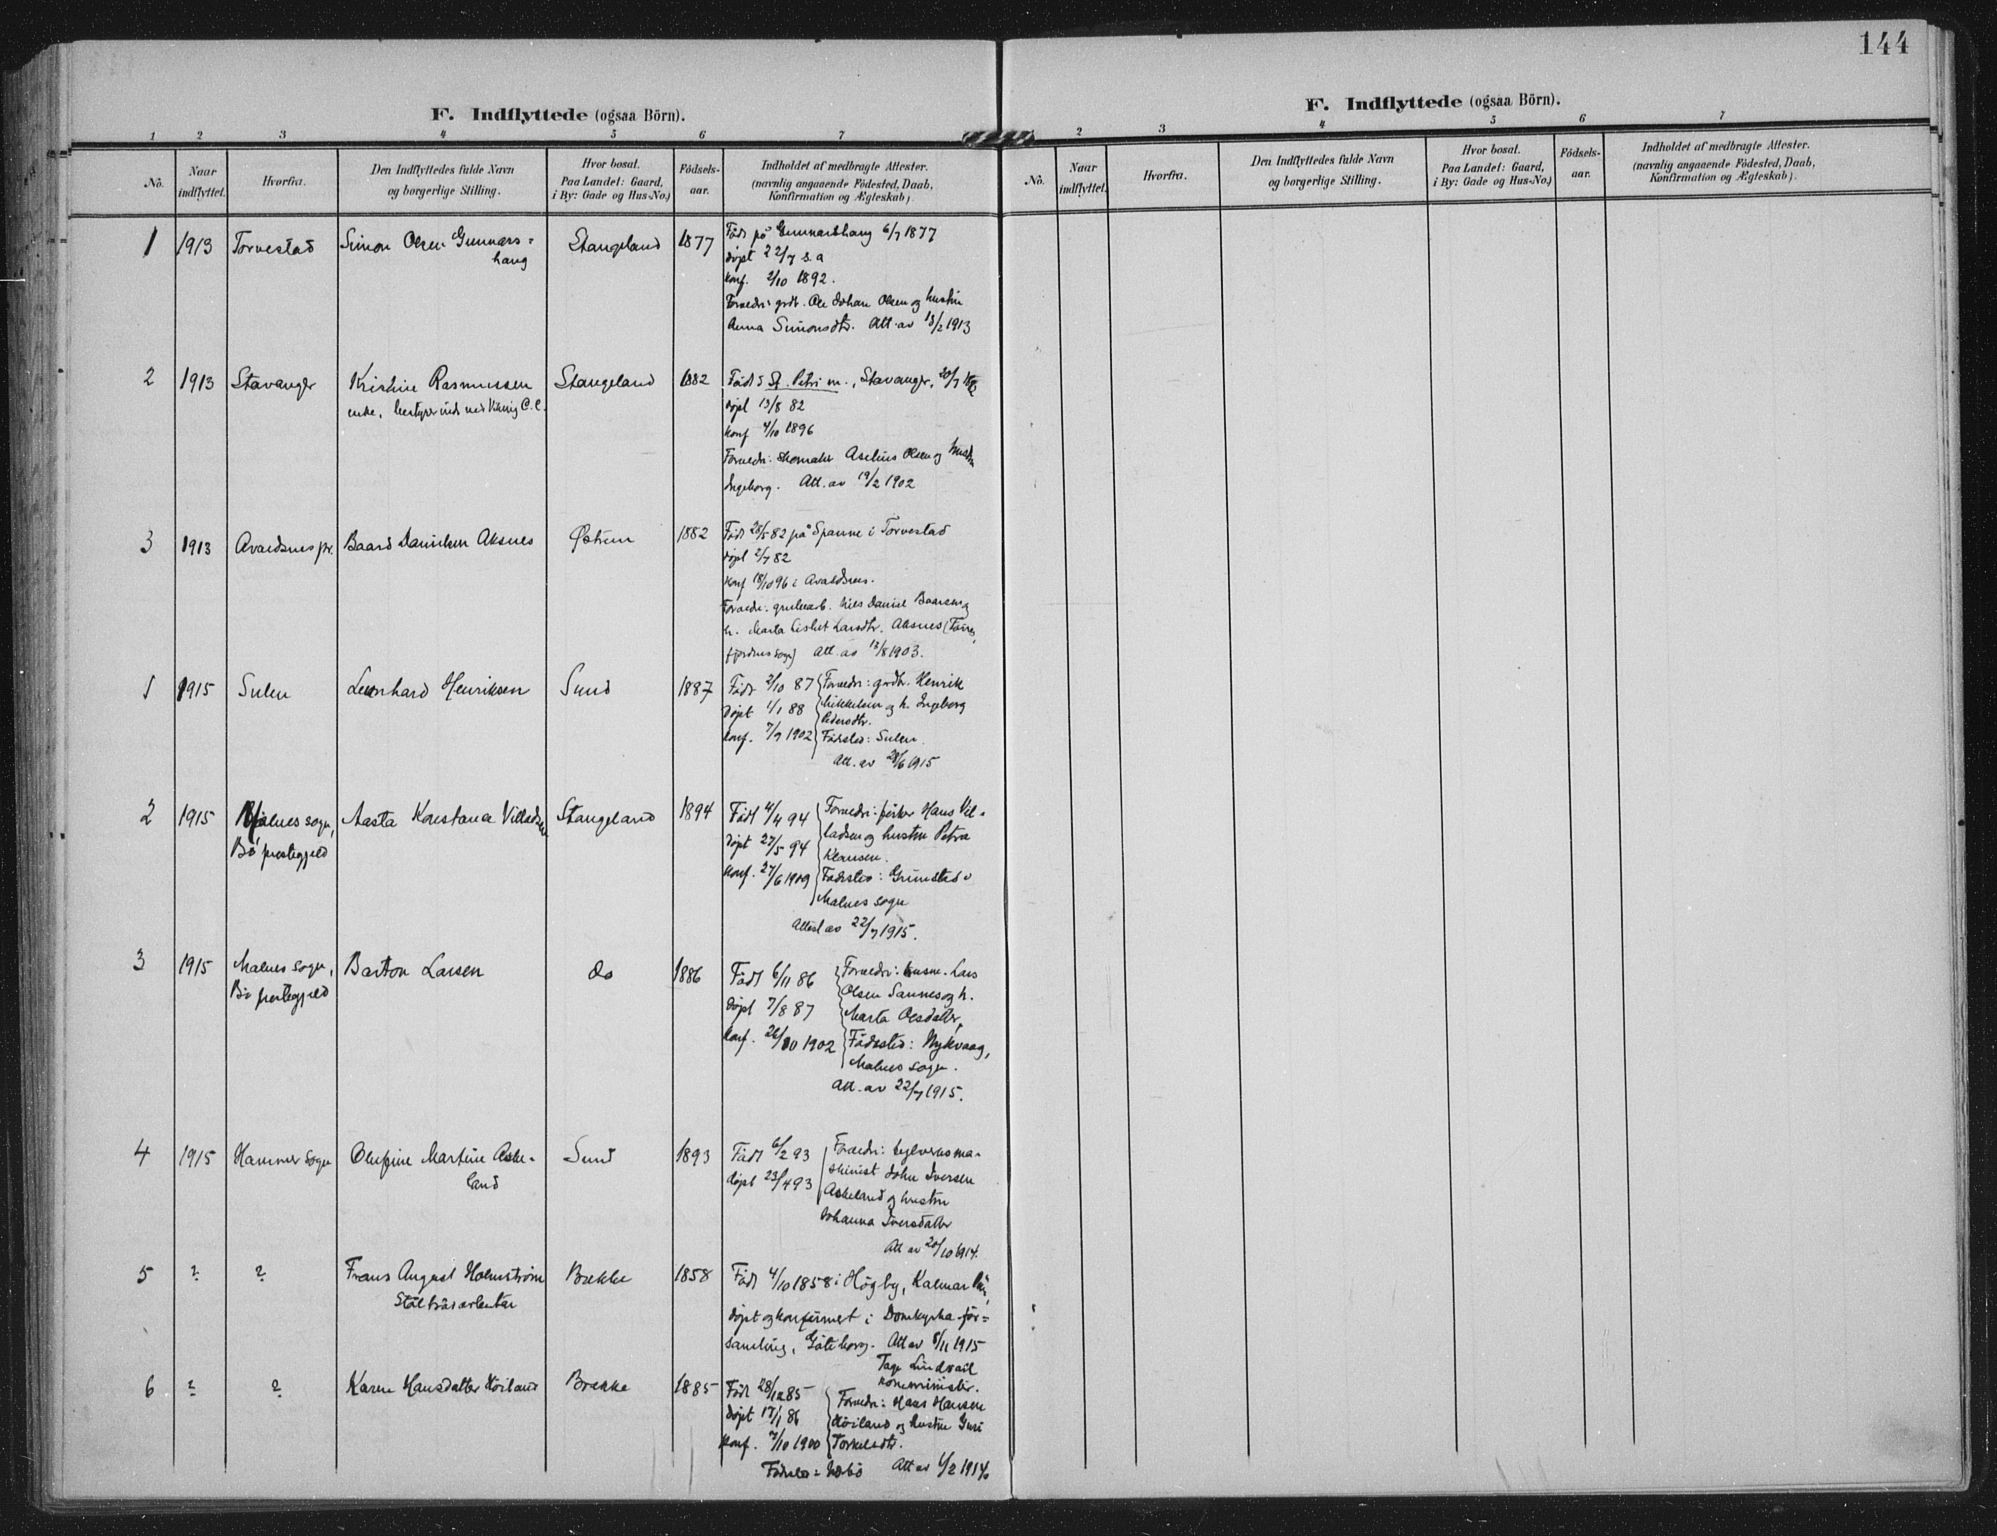 144
F. Indflyttede (ogsaa Börn).
1 2 3 4 5 6 7
No. Naar indflyttet. Hvorfra. Den Indflyttedes fulde Navn og borgerlige Stilling. Hvor bosat. Paa Landet: Gaard, i By: Gade og Hus-No.) Fødsels-aar. Indholdet af medbragte Attester. (navnlig angaaende Fødested, Daab, Konfirmation og Ægteskab).
1 1913 Torvestad Simon Olsen Gunnars= Stangeland 1877 Född på Gunnarshaug 6/7 1877
haug döpt 22/7 s.a
konf. 2/10 1892.
Foraedr: grdb. Ole Johan Olsen og hustru
Anna Simonsdtr. Att. av 13/2 1913
2 1913 Stavanger Kristine Rasmussen Stangeland 1882 Född i St. Petri m., Stavanger, 20/7
enke, bestyrerinde ved Viking C.C. döpt 13/8 82
konf 4/10 1896
Foraedr: skomaker Aselius Olsen og hustru
Ingeborg. Att. av 19/2 1902
3 1913 Avaldsnes pr. Baard Danielsen Aksnes Østrem 1882 Född 28/5 82 på Spanne i Torvestad
döpt 2/7 82
konf 18/10 96 i Avaldsnes.
Foraedr: grubearb. Nils Daniel Baardsen og
h. Marta Lisbet Larsdtr. Aksnes (Føres
fjordens sogn) Att. av 12/8 1903.
1 1915 Sulen Leonhard Henriksen Sund 1887 Född 2/10 87 Foraedr: grdb. Henrik
döpt 1/1 88 Mikkelsen og h. Ingeborg
Pedersdtr.
konf. 7/9 1902 Fødested: Sulen.
Att. av 28/6 1915
2 1915 Malnes sogn, Aasta Konstanse Villadsen Stangeland 1894 Född 4/4 94 Foraedr: fisker Hans Vil=
Bø prestegjeld döpt 27/5 94 ladsen og hustru Petra
Klausen.
konf. 27/6 1909 Fødested: Grimstad i
Malnes sogn
Attest av 22/7 1915.
3 1915 Malnes sogn, Barton Larsen do 1886 Född 6/11 86 Foraedr: husm. Lars
Bø prestegjeld döpt 7/8 87 Olsen Sannes og h.
Marta Olsdatter,
konf. 26/10 1902 Fødested: Nykvaag,
Malnes sogn.
Att. av 22/7 1915.
4 1915 Hammer sogn Olufine Martine Aske= Sund 1893 Född 6/2 93 Foraedr:
land döpt 23/4 93 skinist John Iversen
Askeland og hustru
Johanna Iversdatter
Att av 20/10 1914.
5 ? ? Frans August Holmstrøm Brekke 1858 Född 4/10 1858 i Högby, Kalmar län,
Ståltrådarbeiter döpt og konfirmert i Domkyrka för=
samling, Göteborg. Att av 8/11 1915
Tage Lindvall
komminister.
6 ? ? Karen Hansdatter Høiland Brekke 1885 Född 28/12 85 Foraedr: Hans Hansen
döpt 17/1 86 Høiland og hustru Guri
konf. 7/10 1900 Torkelsdtr.
Fødested: Att av 1/2 1916
F. Indflyttede (ogsaa Börn).
2 3 4 5 6 7
No. Naar indflyttet. Hvorfra. Den Indflyttedes fulde Navn og borgerlige Stilling. Hvor bosat. Paa Landet: Gaard, i By: Gade og Hus-No.) Fødsels-aar. Indholdet af medbragte Attester. (navnlig angaaende Fødested, Daab, Konfirmation og Ægteskab).